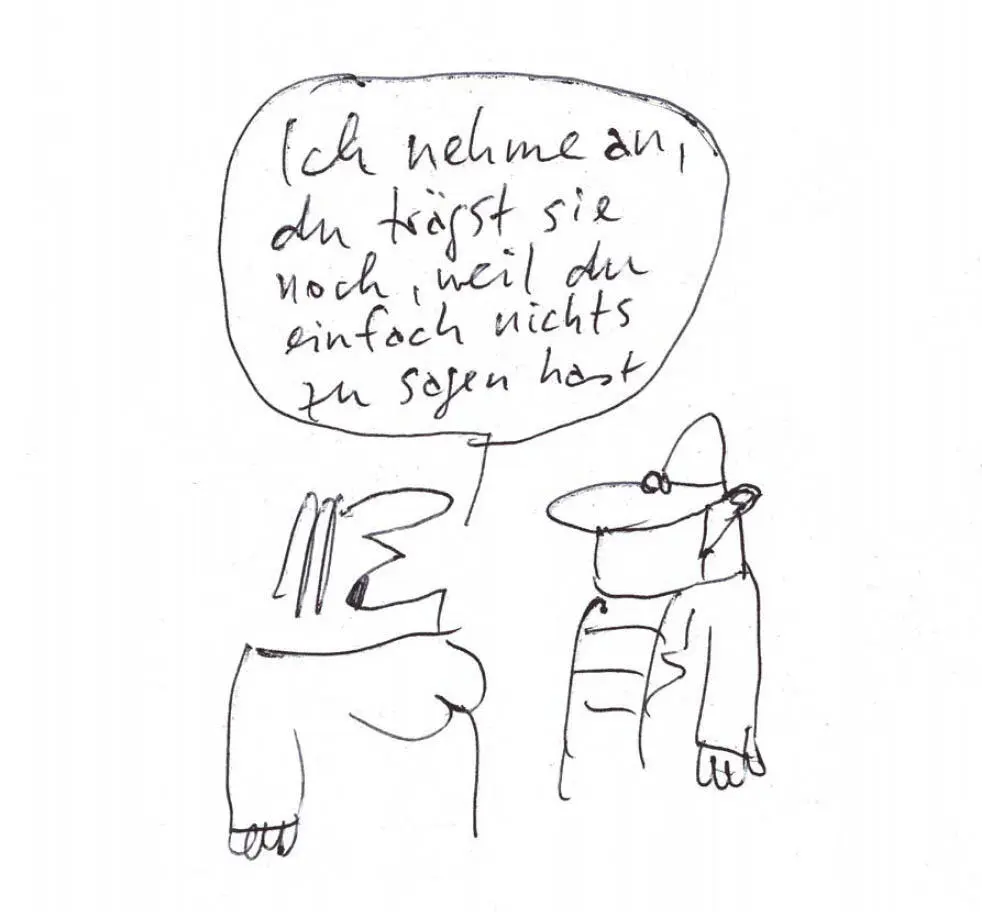 Ich nehme an,
du trägst sie
noch, weil du
einfach nichts
zu sagen hast